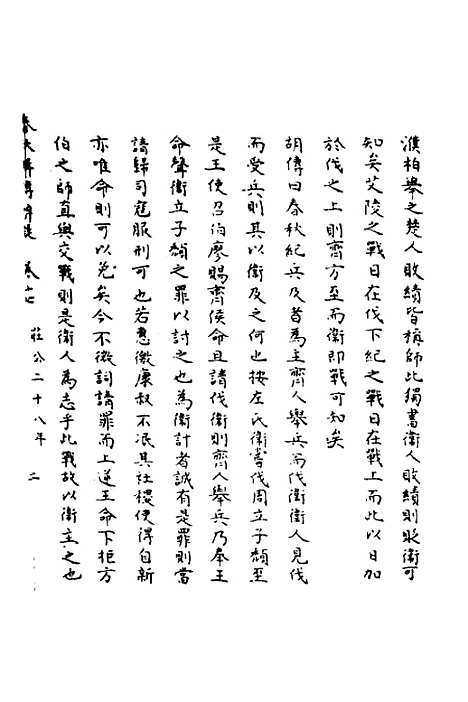 濮柏舉之楚人敗績皆稱師此獨書衛人敗績則貶衛可
知矣艾陵之戰日在伐下紀之戰日在戰上而此以日加
於伐之上則齊方至而衛即戰可知矣
胡傳曰春秋紀兵及者為主齊人舉兵而伐衛衛人見伐
而受兵則其以衛及之何也按左氏衛嘗伐周立子頽至
是王使召伯廖賜齊侯命且請伐衛則齊人舉兵乃奉王
命聲衛立子頽之罪以討之也為衛計者誠有是罪則當
請歸司寇服刑可也若惠徼康叔不泯其社稷使得自新
亦唯命則可以免矣今不徵詞請罪而上逆王命下拒方
伯之師直與交戰則是衛人為志乎此戰故以衛主之也
卷十七
莊公二十八年
二